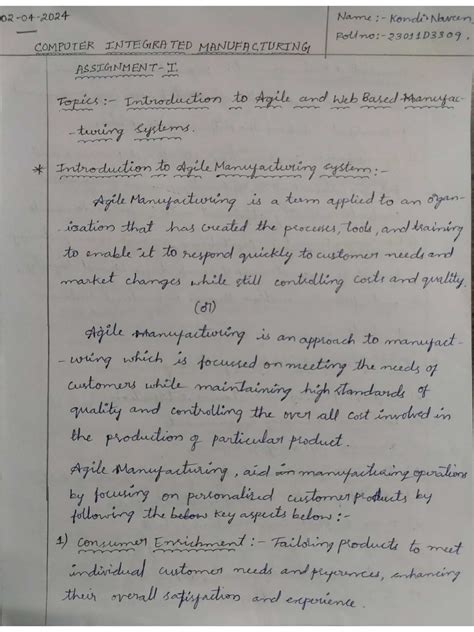 02-04-2024
Name :- Kondi Naveen
Rollno:- 23011D3309.
COMPUTER INTEGRATED MANUFACTURING
ASSIGNMENT-I.
Topics:- Introduction to Agile and Web Based Manufac-
-turing systems.
* Introduction to Agile Manufacturing system:-
Agile Manufacturing is a term applied to an organ-
-ization that has created the processes, tools, and training
to enable it to respond quickly to customer needs and
market changes while still controlling costs and quality.
(or)
Agile Manufacturing is an approach to manufact-
-uring which is focussed on meeting the needs of
customers while maintaining high standards of
quality and controlling the over all cost involved in
the production of particular product.
Agile Manufacturing, aid in manufacturing operations
by focusing on personalised customer products by
following the below key aspects below:-
1) Consumer Enrichment :- Tailoring products to meet
individual customer needs and preferences, enhancing
their overall satisfaction and experience.